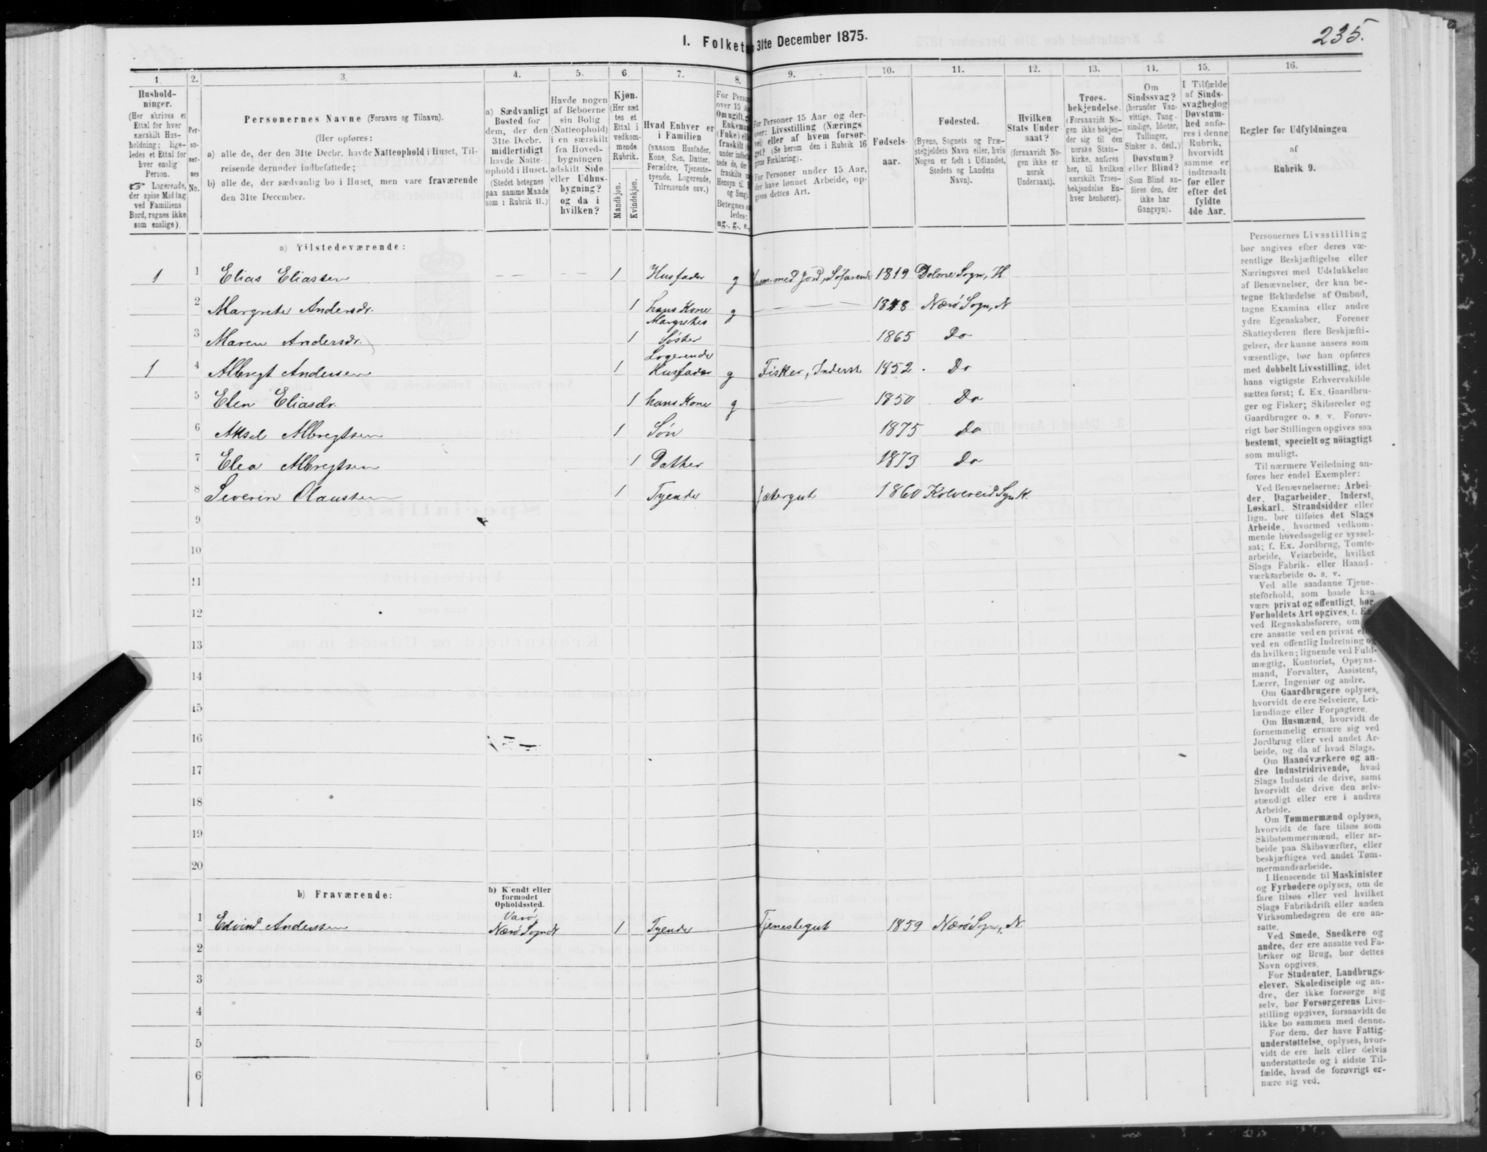 I. Folketa 31te December 1875.
235.
1. 2. 3. 4. 5. 6 7. 8. 9. 10. 11. 12. 13. 14. 15. 16.
Hushold-
ninger.
(Her skrives et
Ettal for hver
særskilt Hus-
holdning; lige-
ledes et Ettal for
hver enslig
Person.
☞ Logerende,
der spise Middag
ved Familiens
Bord, regnes ikke
som enslige).
Per-
so-
ner-
nes
No.
Personernes Navne (Fornavn og Tilnavn).
(Her opføres:
a) alle de, der den 31te Decbr. havde Natteophold i Huset, Til-
reisende derunder indbefattede;
b) alle de, der sædvanlig bo i Huset, men vare fraværende
den 31te December.
a) Sædvanligt
Bosted for
dem, der den
31te Decbr.
midlertidigt
havde Natte-
ophold i Huset.
(Stedet betegnes
paa samme Maade
som i Rubrik 11.)
Havde nogen
af Beboerne
sin Bolig
(Natteophold)
i en særskilt
fra Hoved-
bygningen
adskilt Side-
eller Udhus-
bygning?
og da i
hvilken?
Kjøn.
(Her sæt
tes et
Ettal i
vedkom-
mende
Rubrik.
Mandkjøn.
Kvindekjøn.
Hvad Enhver er
i Familien
(saasom Husfader,
Kone, Søn, Datter,
Forældre, Tjeneste-
tyende, Logerende,
Tilreisende osv.)
For Perso
over 15 A
Om ugift, g
Enkema
(Enke) ell
fraskilt
Betegnes s
ledes:
ug., g., e.
For Personer 15 Aar og der-
over: Livsstilling (Nærings
vei) eller af hvem forsør-
get? (Se herom den i Rubrik 16
givne Forklaring).
For Personer under 15 Aar,
der have lønnet Arbeide, op-
gives dettes Art.
Fødsels-
aar.
Fødested.
(Byens, Sognets og Præ-
stegjeldets Navn eller, hvis
Nogen er født i Udlandet,
Stedets og Landets
Navn).
Hvilken
Stats Under-
saat?
(forsaavidt No-
gen ikke er
norsk
Undersaat).
Troes-
bekjendelse.
(Forsaavidt No-
gen ikke bekjen-
der sig til den
norske Stats-
kirke, anføres
her, til hvilken
særskilt Troes-
bekjendelse En-
hver henhører).
Om
Sindssvag?
(herunder Van-
vittige, Tung-
sindige, Idioter,
Tullinger,
Sinker o. desl.)
Døvstum?
eller Blind?
(Som Blind an-
føres den, der
ikke har
Gangsyn).
I Tilfælde
af Sinds-
svaghed og
Døvstum-
hed anfø-
res i denne
Rubrik,
hvorvidt
samme er
indtraadt
før eller
efter det
fyldte
4de Aar.
Regler for Udfyldningen
af
Rubrik 9.
a) Tilstedeværende:
1 1 Elias Eliassen — — — 1 Husfader g med Jord, 1819 Dolme Sogn, H
2 Margrete Andersdr. 1 hans Kone g — 1848 Nærø Sogn, N
3 Maren Andersdr. 1 Margretes Søster 1865 Do
1 4 Albregt Andersen 1 Logerende Husfader g Fisker, Inderst 1852 Do
5 Elen Eliasdr. 1 hans Kone g — 1850 Do
6 Aksel Albregtsen 1 Søn 1875 Do
7 Elea Albregtsen 1 Datter 1873 Do
8 Severin Olaussen 1 Tyende Jætergut 1860 Kolvereid
9
10
11
12
13
14
15
16
17
18
19
20
b) Fraværende:
b) Kjendt eller
formodet
Opholdssted.
1 Edvind Andersen Nærø Sogn 1 Tyende Tjenestegut 1859 Nærø Sogn, N
2
3
4
5
6
Personernes Livsstilling
bør angives efter deres væ-
sentlige Beskjæftigelse eller
Næringsvei med Udelukkelse
af Benævnelser, der kun be-
tegne Beklædelse af Ombud,
tagne Examina eller andre
ydre Egenskaber. Forener
Skatteyderen flere Beskjæfti-
gelser, der kunne ansees som
væsentlige, bør han opføres
med dobbelt Livsstilling, idet
hans vigtigste Erhvervskilde
sættes først; f. Ex. Gaardbru-
ger og Fisker; Skibsreder og
Gaardbruger o. s. v. Forøv-
rigt bør Stillingen opgives saa
bestemt, specielt og nøiagtigt
som muligt.
Til nærmere Veiledning an-
føres her endel Exempler:
Ved Benævnelserne: Arbei-
der, Dagarbeider, Inderst,
Løskarl, Strandsidder eller
lign. bør tilføies det Slags
Arbeide, hvormed vedkom-
mende hovedsagelig er syssel-
sat; f. Ex. Jordbrug, Tomte-
arbeide, Veiarbeide, hvilket
Slags Fabrik- eller Haand-
værksarbeide o. s. v.
Ved alle saadanne Tjene-
steforhold, som baade kan
være privat og offentligt, bør
Forholdets Art opgives, f. Ex.
ved Regnskabsførere, om
ere ansatte ved en privat el
ved en offentlig Indretning o
da hvilken; lignende ved Fuld-
mægtig, Kontorist, Opsyns-
mand, Forvalter, Assistent,
Lærer, Ingeniør og andre.
Om Gaardbrugere oplyses,
hvorvidt de ere Selveiere, Lei-
lændinge eller Forpagtere.
Om Husmænd, hvorvidt de
fornemmelig ernære sig ved
Jordbrug eller ved andet Ar-
beide, og da af hvad Slags.
Om Haandværkere og an-
dre Industridrivende, hvad
Slags Industri de drive, samt
hvorvidt de drive den selv-
stændigt eller ere i andres
Arbeide.
Om Tømmermænd oplyses,
hvorvidt de fare tilsøs som
Skibstømmermænd, eller ar-
beide paa Skibsværfter, eller
beskjæftiges ved andet Tøm-
mermandsarbeide.
I Henseende til Maskinister
og Fyrbødere oplyses, om de
fare tilsøs eller ved hvilket
Slags Fabrikdrift eller anden
Virksomhedsgren de ere an-
satte.
Ved Smede, Snedkere og
andre, der ere ansatte ved Fa-
briker og Brug, bør dettes
Navn opgives.
For Studenter, Landbrugs-
elever, Skoledisciple og an-
dre, der ikke forsørge sig
selv, bør Forsørgerens Livs-
stilling opgives, forsaavidt de
ikke bo sammen med denne.
For dem, der have Fattig-
understøttelse, oplyses, hvor-
vidt de ere helt eller delvis
understøttede og i sidste Til-
fælde, hvad de forøvrigt er-
nære sig ved.